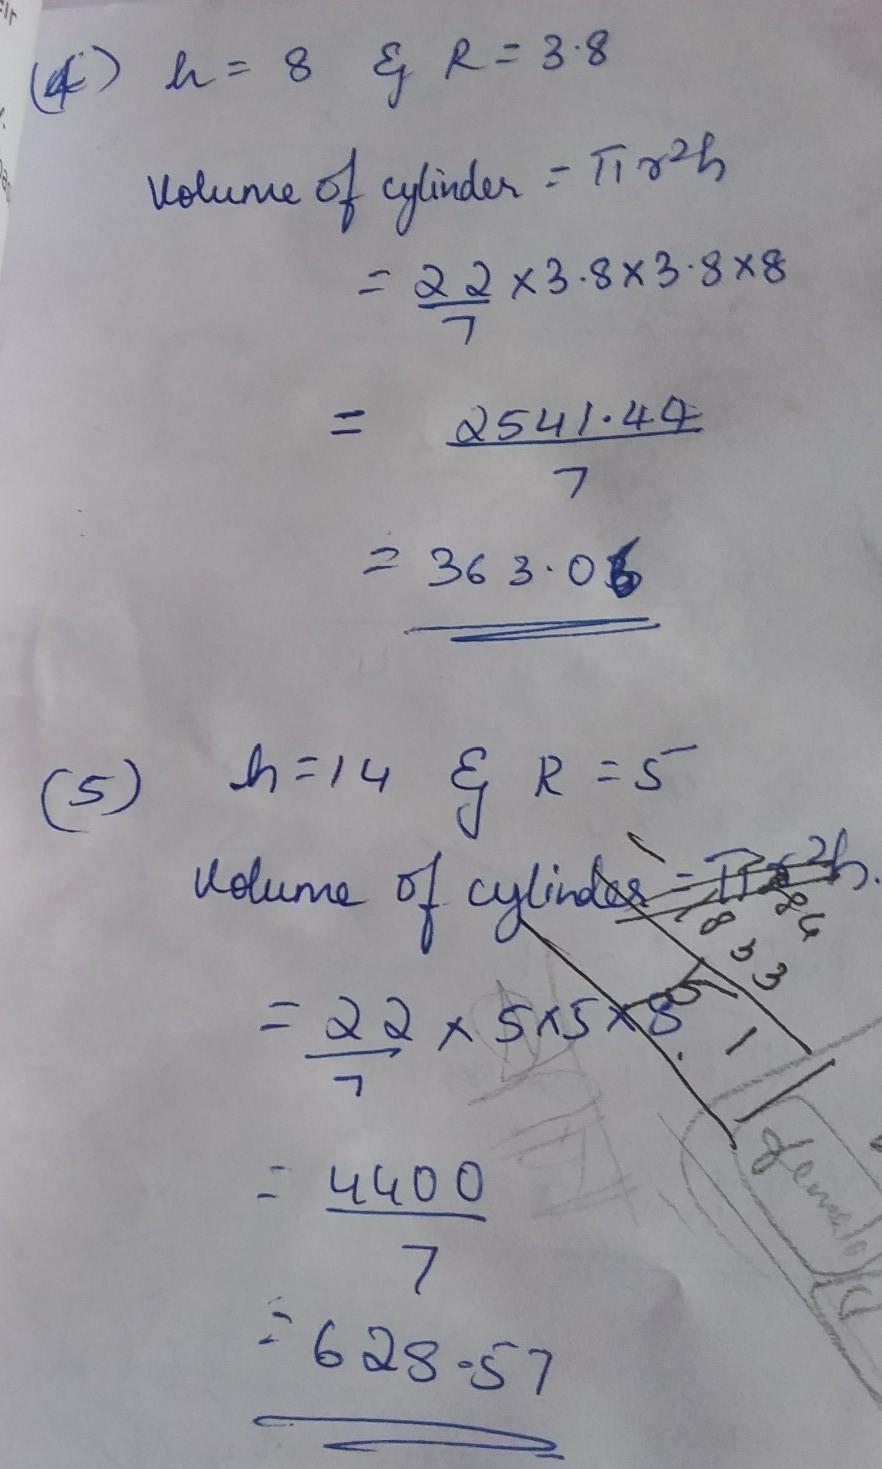 (4) h = 8 & R = 3.8
Volume of cylinder = πr²h
= 22/7 × 3.8 × 3.8 × 8
= 2541.44/7
= 363.06
(5) h = 14 & R = 5
Volume of cylinder = πr²h.
= 22/7 × 5 × 5 × 8.
= 4400/7
= 628.57